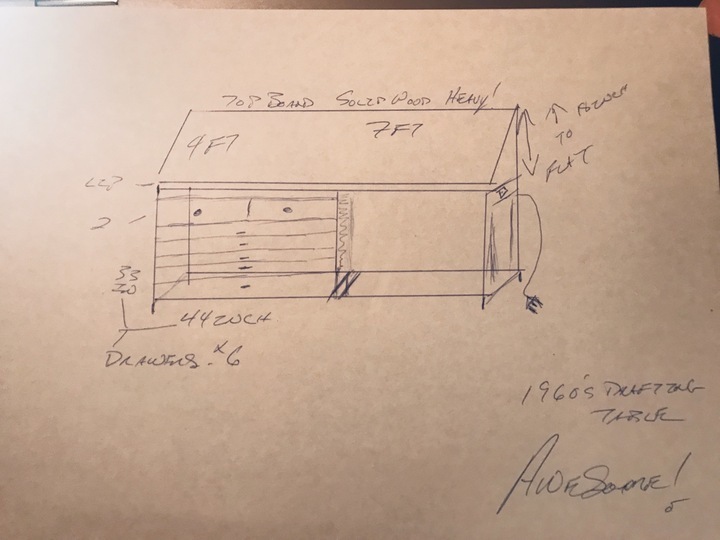 TOP BOARD SOLID WOOD HEAVY!
4 FT
7 FT
TO
FLAT
LIP
2
33
30
44 INCH
DRAWERS x 6
1960's DRAFTING
TABLE
AWESOME!